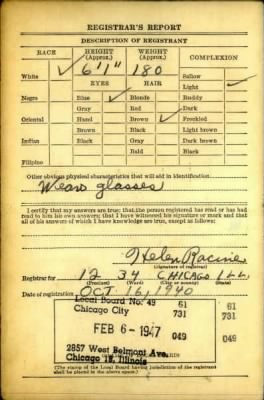 REGISTRAR'S REPORT
DESCRIPTION OF REGISTRANT
RACE HEIGHT (Approx.) WEIGHT (Approx.) COMPLEXION
White ✓ 6'1" 180 Sallow
EYES HAIR Light ✓
Negro Blue ✓ Blonde Ruddy
Gray Red Dark
Oriental Hazel Brown ✓ Freckled
Brown Black Light brown
Indian Black Gray Dark brown
Bald Black
Filipino
Other obvious physical characteristics that will aid in identification
Wears glasses
I certify that my answers are true; that the person registered has read or has had
read to him his own answers; that I have witnessed his signature or mark and that
all of his answers of which I have knowledge are true, except as follows:
Helen Racine
(Signature of registrar)
Registrar for 12 34 CHICAGO ILL.
(Precinct) (Ward) (City or county) (State)
Date of registration OCT. 16, 1940
Local Board No. 49 61
Chicago City 731
61
731
FEB 6 - 1947 049
049
2857 West Belmont Ave.
Chicago 18, Illinois
(The stamp of the Local Board having jurisdiction of the registrant
shall be placed in the above space.)